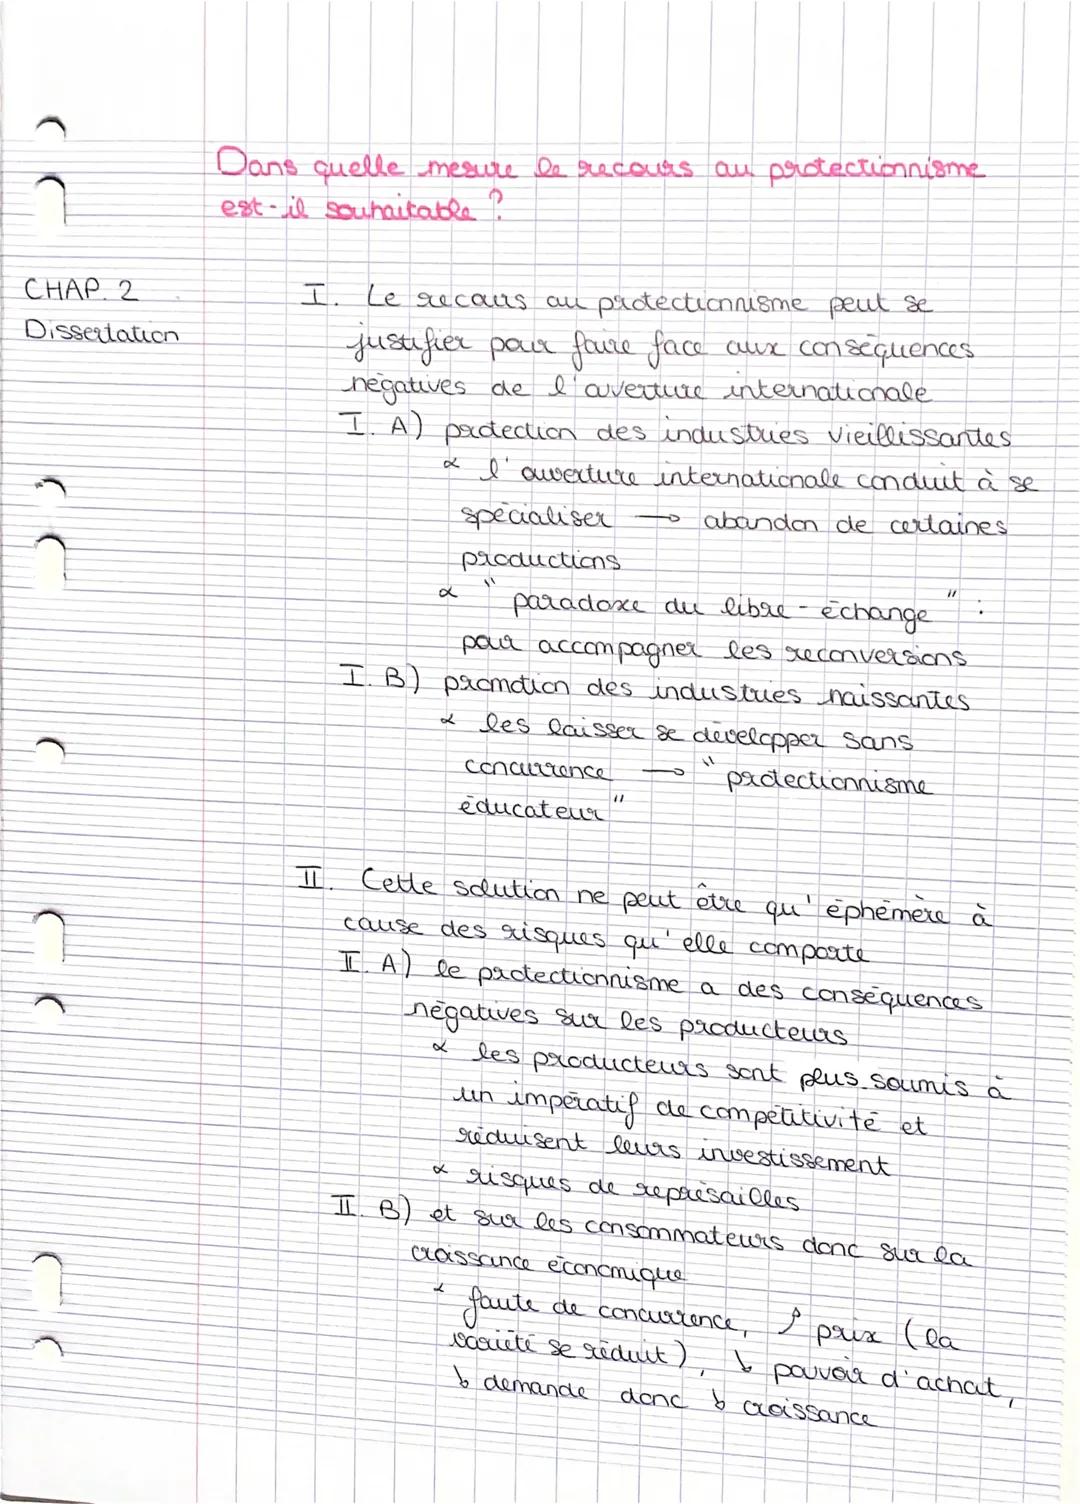 Dans quelle mesure le recours au protectionnisme
est-il souhaitable ?
CHAP. 2
Dissertation
I. Le recours au protectionnisme peut se
justifier pour faire face aux conséquences
négatives de l'ouverture internationale
I. A) protection des industries vieillissantes
α l'ouverture internationale conduit à se
spécialiser → abandon de certaines
productions
α "paradoxe du libre-échange" :
pour accompagner les reconversions
I. B) promotion des industries naissantes
α les laisser se développer sans
concurrence → "protectionnisme
éducateur"
II. Cette solution ne peut être qu'éphémère à
cause des risques qu'elle comporte
II. A) le protectionnisme a des conséquences
négatives sur les producteurs
α les producteurs sont plus soumis à
un impératif de compétitivité et
réduisent leurs investissement
α risques de représailles
II. B) et sur les consommateurs donc sur la
croissance économique
α faute de concurrence, ↑ prix (la
variété se réduit), ↓ pouvoir d'achat,
↓ demande donc ↓ croissance